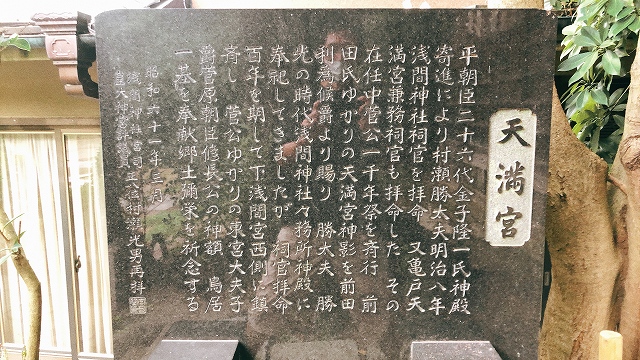 天満宮
平朝臣二十六代金子隆一氏神殿
寄進により村瀬勝太夫明治八年
浅間神社祠官を拝命 又亀戸天
満宮兼務祠官も拝命した その
在任中菅公一千年祭を斉行 前
田氏ゆかりの天満宮神影を前田
利為候爵より賜り 勝太夫 勝
光の時代浅間神社々務所神殿に
奉祀してきましたが 祠官拝命
百年を期して下浅間宮西側に鎮
斉し 菅公ゆかりの東宮大夫子
爵菅原朝臣修長公の神額 鳥居
一基を奉献郷土弥栄を祈念する
昭和六十一年三月
浅間神社宮司正八位村瀬光男再拝